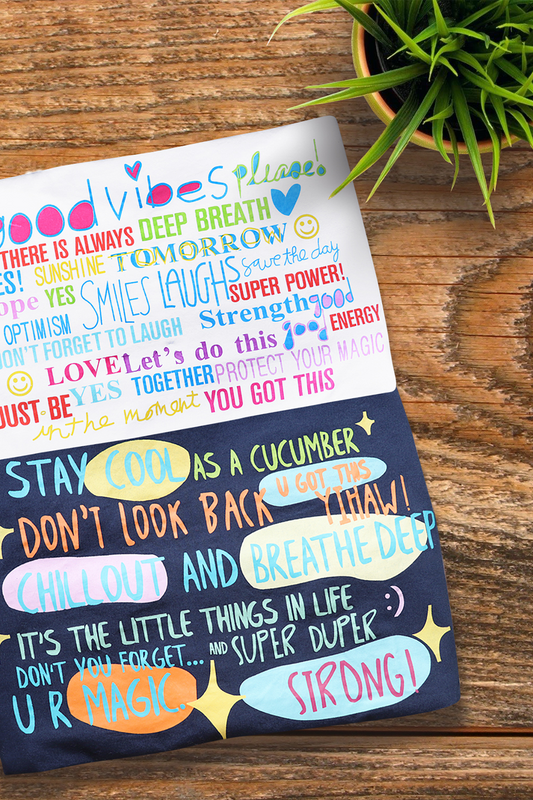 good vibes please!
THERE IS ALWAYS DEEP BREATH
ES! SUNSHINE TOMORROW save the day
ope YES SMILES LAUGHS SUPER POWER!
OPTIMISM Strength good
DON'T FORGET TO LAUGH good ENERGY
LOVE! Let's do this
YES TOGETHER PROTECT YOUR MAGIC
JUST BE in the moment YOU GOT THIS
STAY COOL AS A CUCUMBER
U GOT THIS
DON'T LOOK BACK YIHAW!
CHILLOUT AND BREATHE DEEP
IT'S THE LITTLE THINGS IN LIFE :)
DON'T YOU FORGET... AND SUPER DUPER
U R MAGIC.. STRONG!